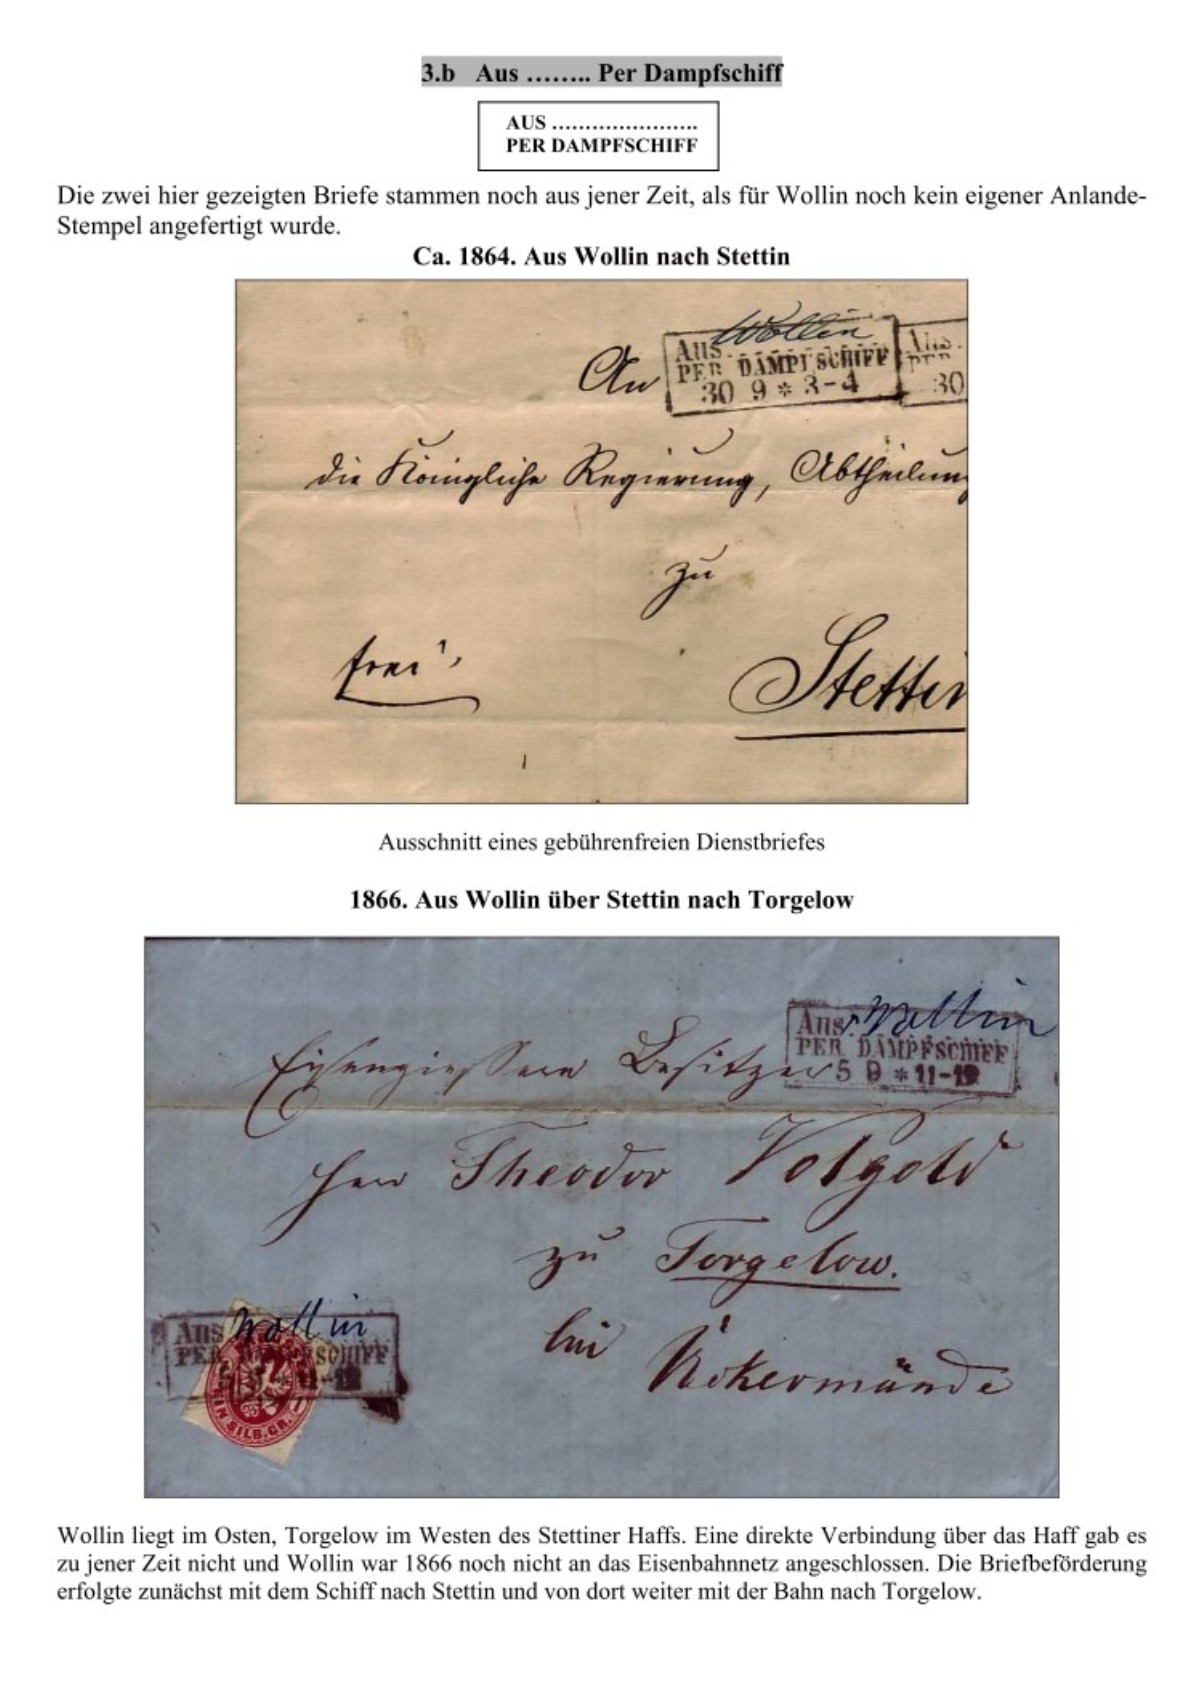 3.b Aus …….. Per Dampfschiff
AUS ………………….
PER DAMPFSCHIFF
Die zwei hier gezeigten Briefe stammen noch aus jener Zeit, als für Wollin noch kein eigener Anlande-
Stempel angefertigt wurde.
Ca. 1864. Aus Wollin nach Stettin
Aus Wollin
PER DAMPFSCHIFF
30 9 * 3-4
Aus
PER
30
An
die Königliche Regierung, Abtheilung
zu
frei
Stettin
Ausschnitt eines gebührenfreien Dienstbriefes
1866. Aus Wollin über Stettin nach Torgelow
Aus Wollin
PER DAMPFSCHIFF
5 9 * 11-12
Eisengiesserei Besitzer
Herr Theodor Volgold
zu Torgelow.
bei Ückermünde
Aus Wollin
PER DAMPFSCHIFF
EIN SILB.GR.
Wollin liegt im Osten, Torgelow im Westen des Stettiner Haffs. Eine direkte Verbindung über das Haff gab es
zu jener Zeit nicht und Wollin war 1866 noch nicht an das Eisenbahnnetz angeschlossen. Die Briefbeförderung
erfolgte zunächst mit dem Schiff nach Stettin und von dort weiter mit der Bahn nach Torgelow.